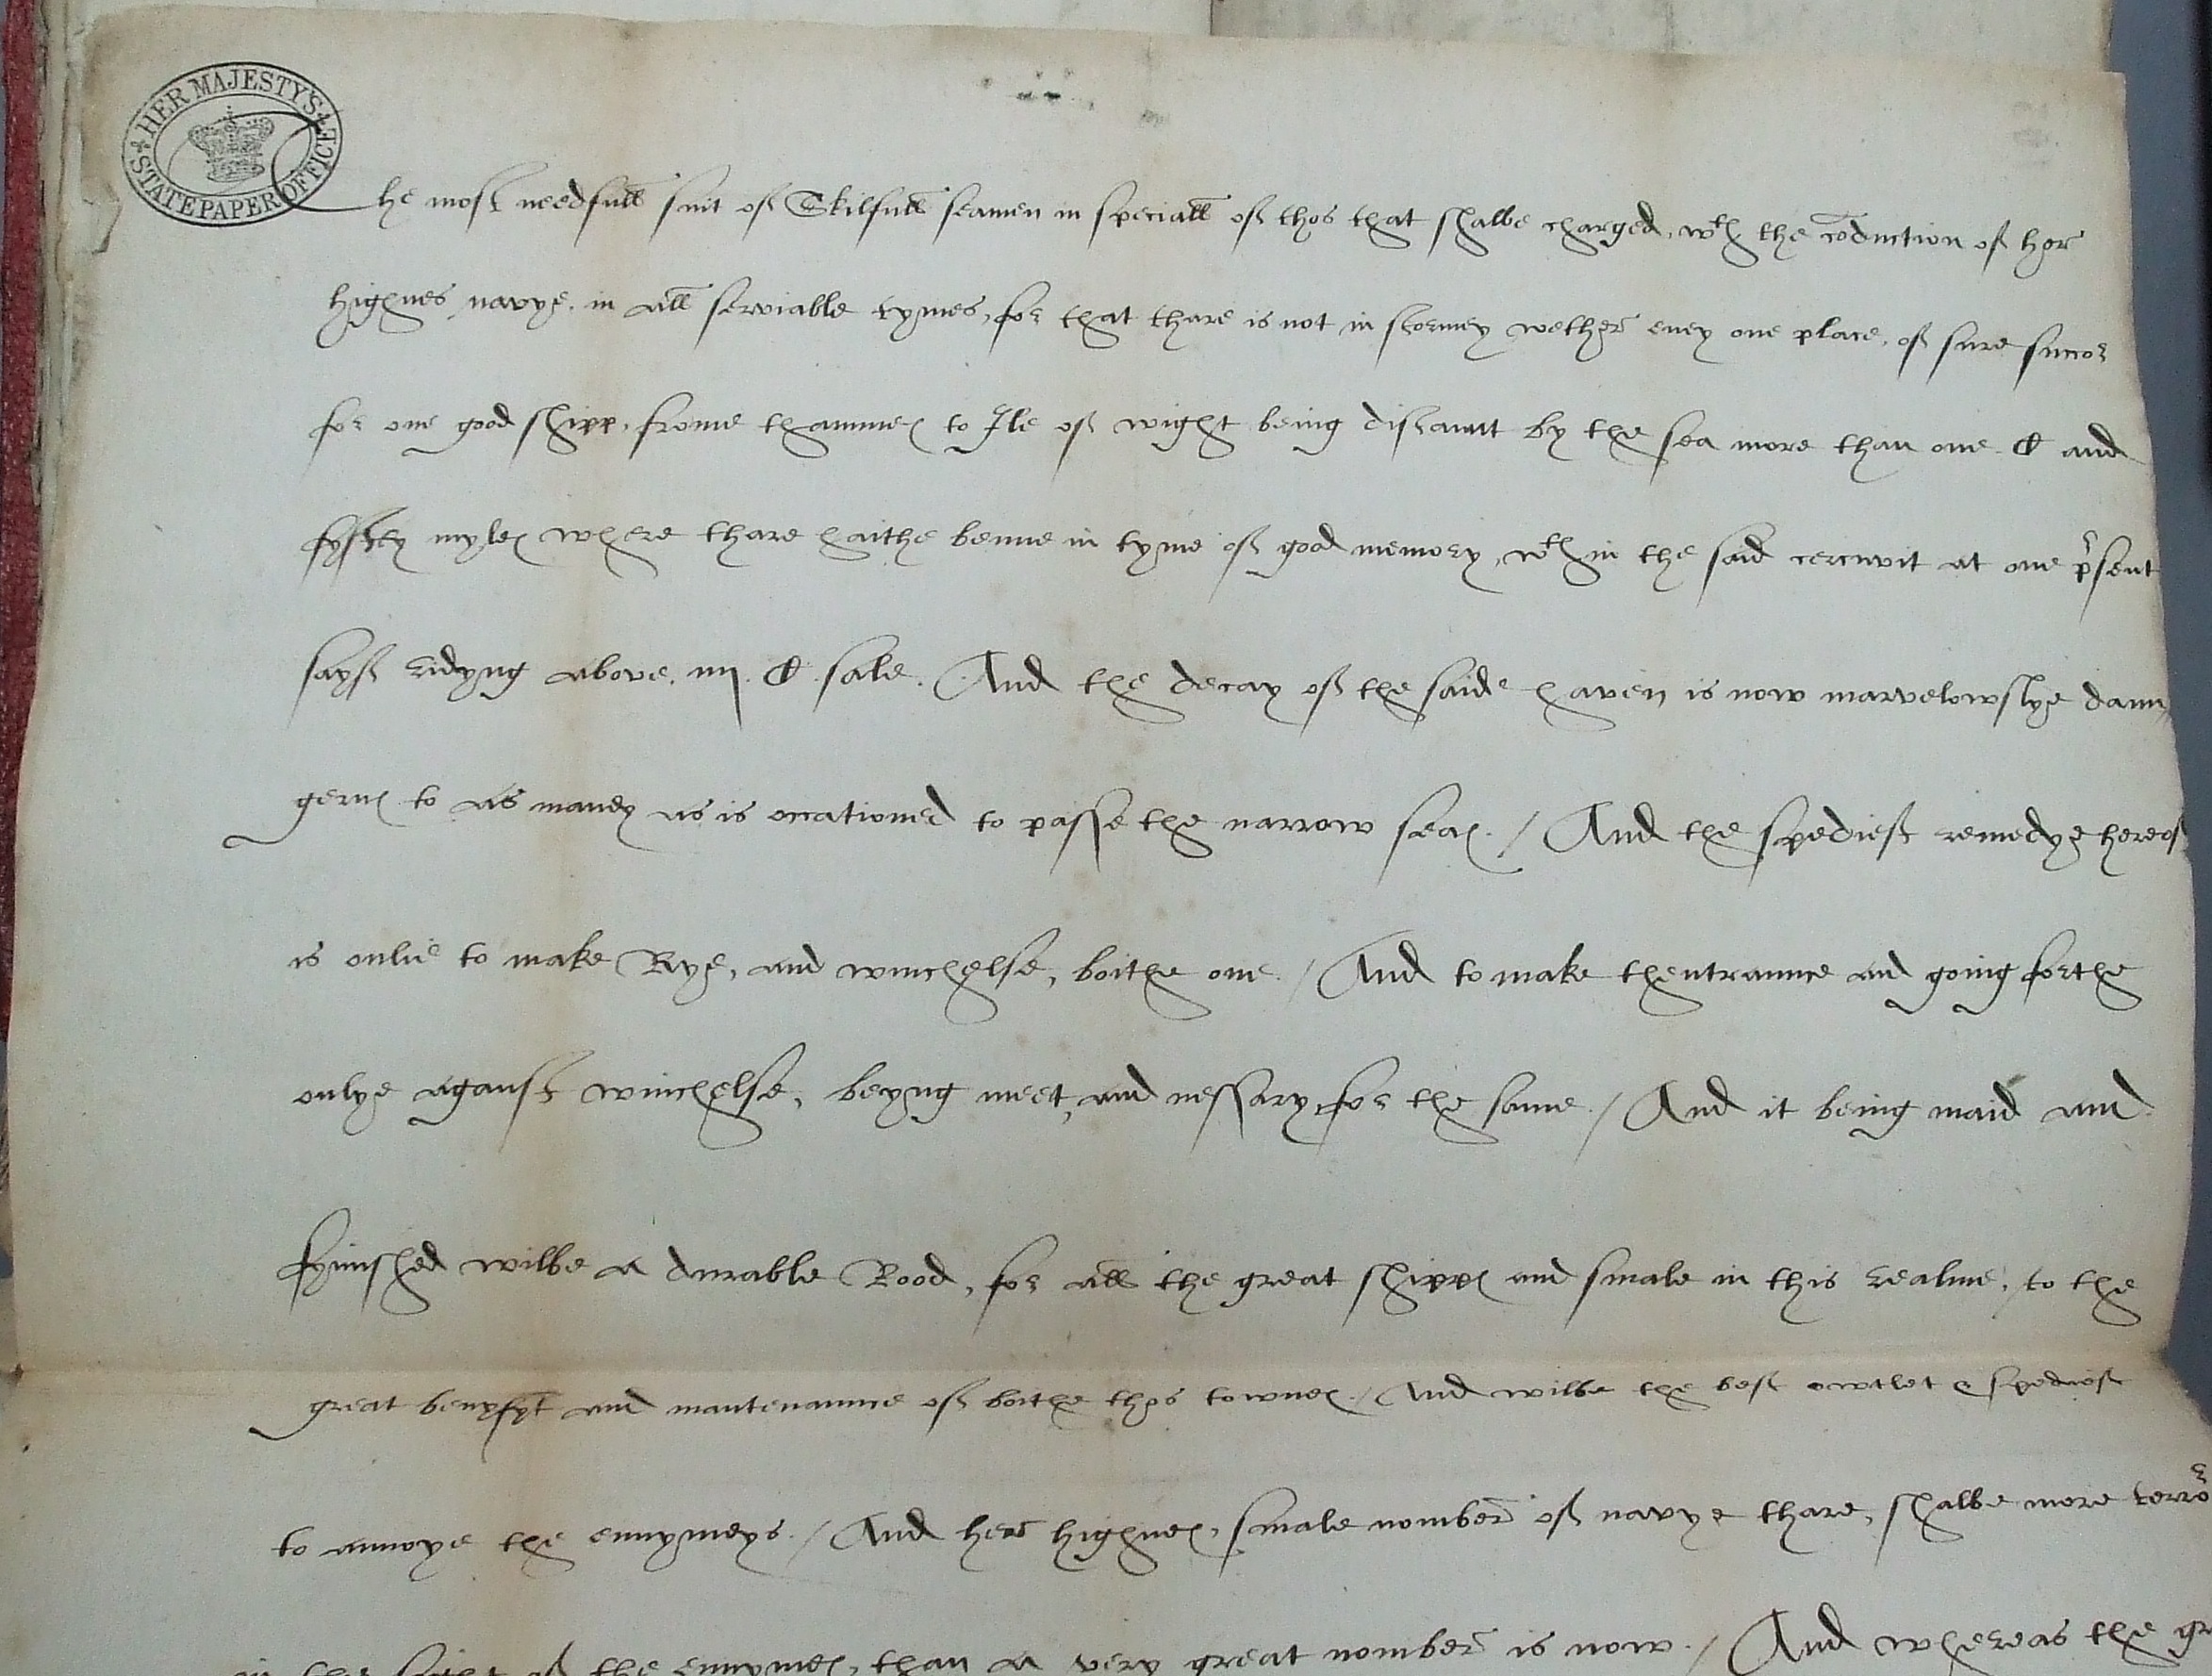 HER MAJESTY'S
STATE PAPER OFFICE
The most needfull suit of Skilfull seamen in speciall of thos that shalbe charged, wth the coduction of her
highnes navye, in all serviable tymes, for that thare is not in stormey wether eney one place, of sure succor
for one good shipp, frome thammes to Ile of wight being distaunt by the sea more than one C and
fyftey myles where thare haithe benne in tyme of good memory, wth in the said cercuvit at one psent
sayf ridyng above, iiij. C. sale. And the decay of the saide haven is now marvelowslye daun
gerus to as maney as is occationed to passe the narrow seas. / And the spediest remedye hereof
is onlie to make Rye, and winchelse, boithe one. / And to make thentraunce and going forthe
onlye aganst winchelse, beyng meet, and nessary, for the same. / And it being maid and
fynished wilbe a durable Rood, for all the great shipps and smale in this realme, to the
great benyfyt and mantenaunce of boithe thos townes. / And wilbe the best owtlet & spediest
to annoye the ennymeys. / And her highnes, smale nomber of navye thare, shalbe more terror
in the sight of the ennymes, than a very great nomber is now. / And whereas the gr